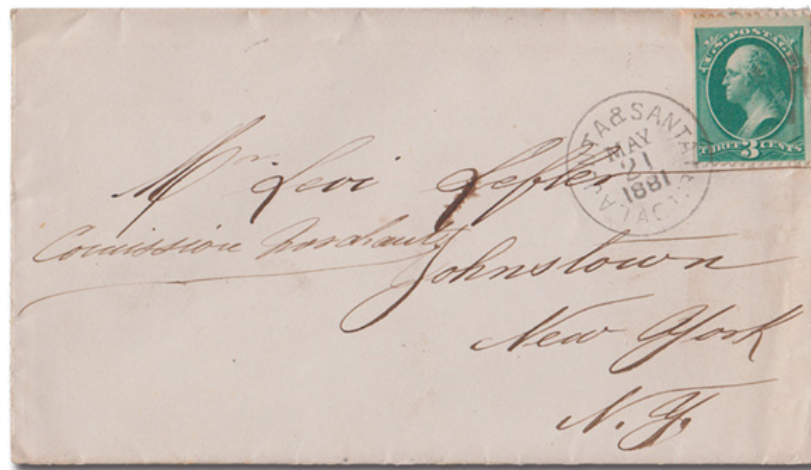 U.S. POSTAGE
THREE 3 CENTS
&SANTA
MAY
21
1881
Mr Levi Lefler
Comission
Johnstown
New York
N.Y.